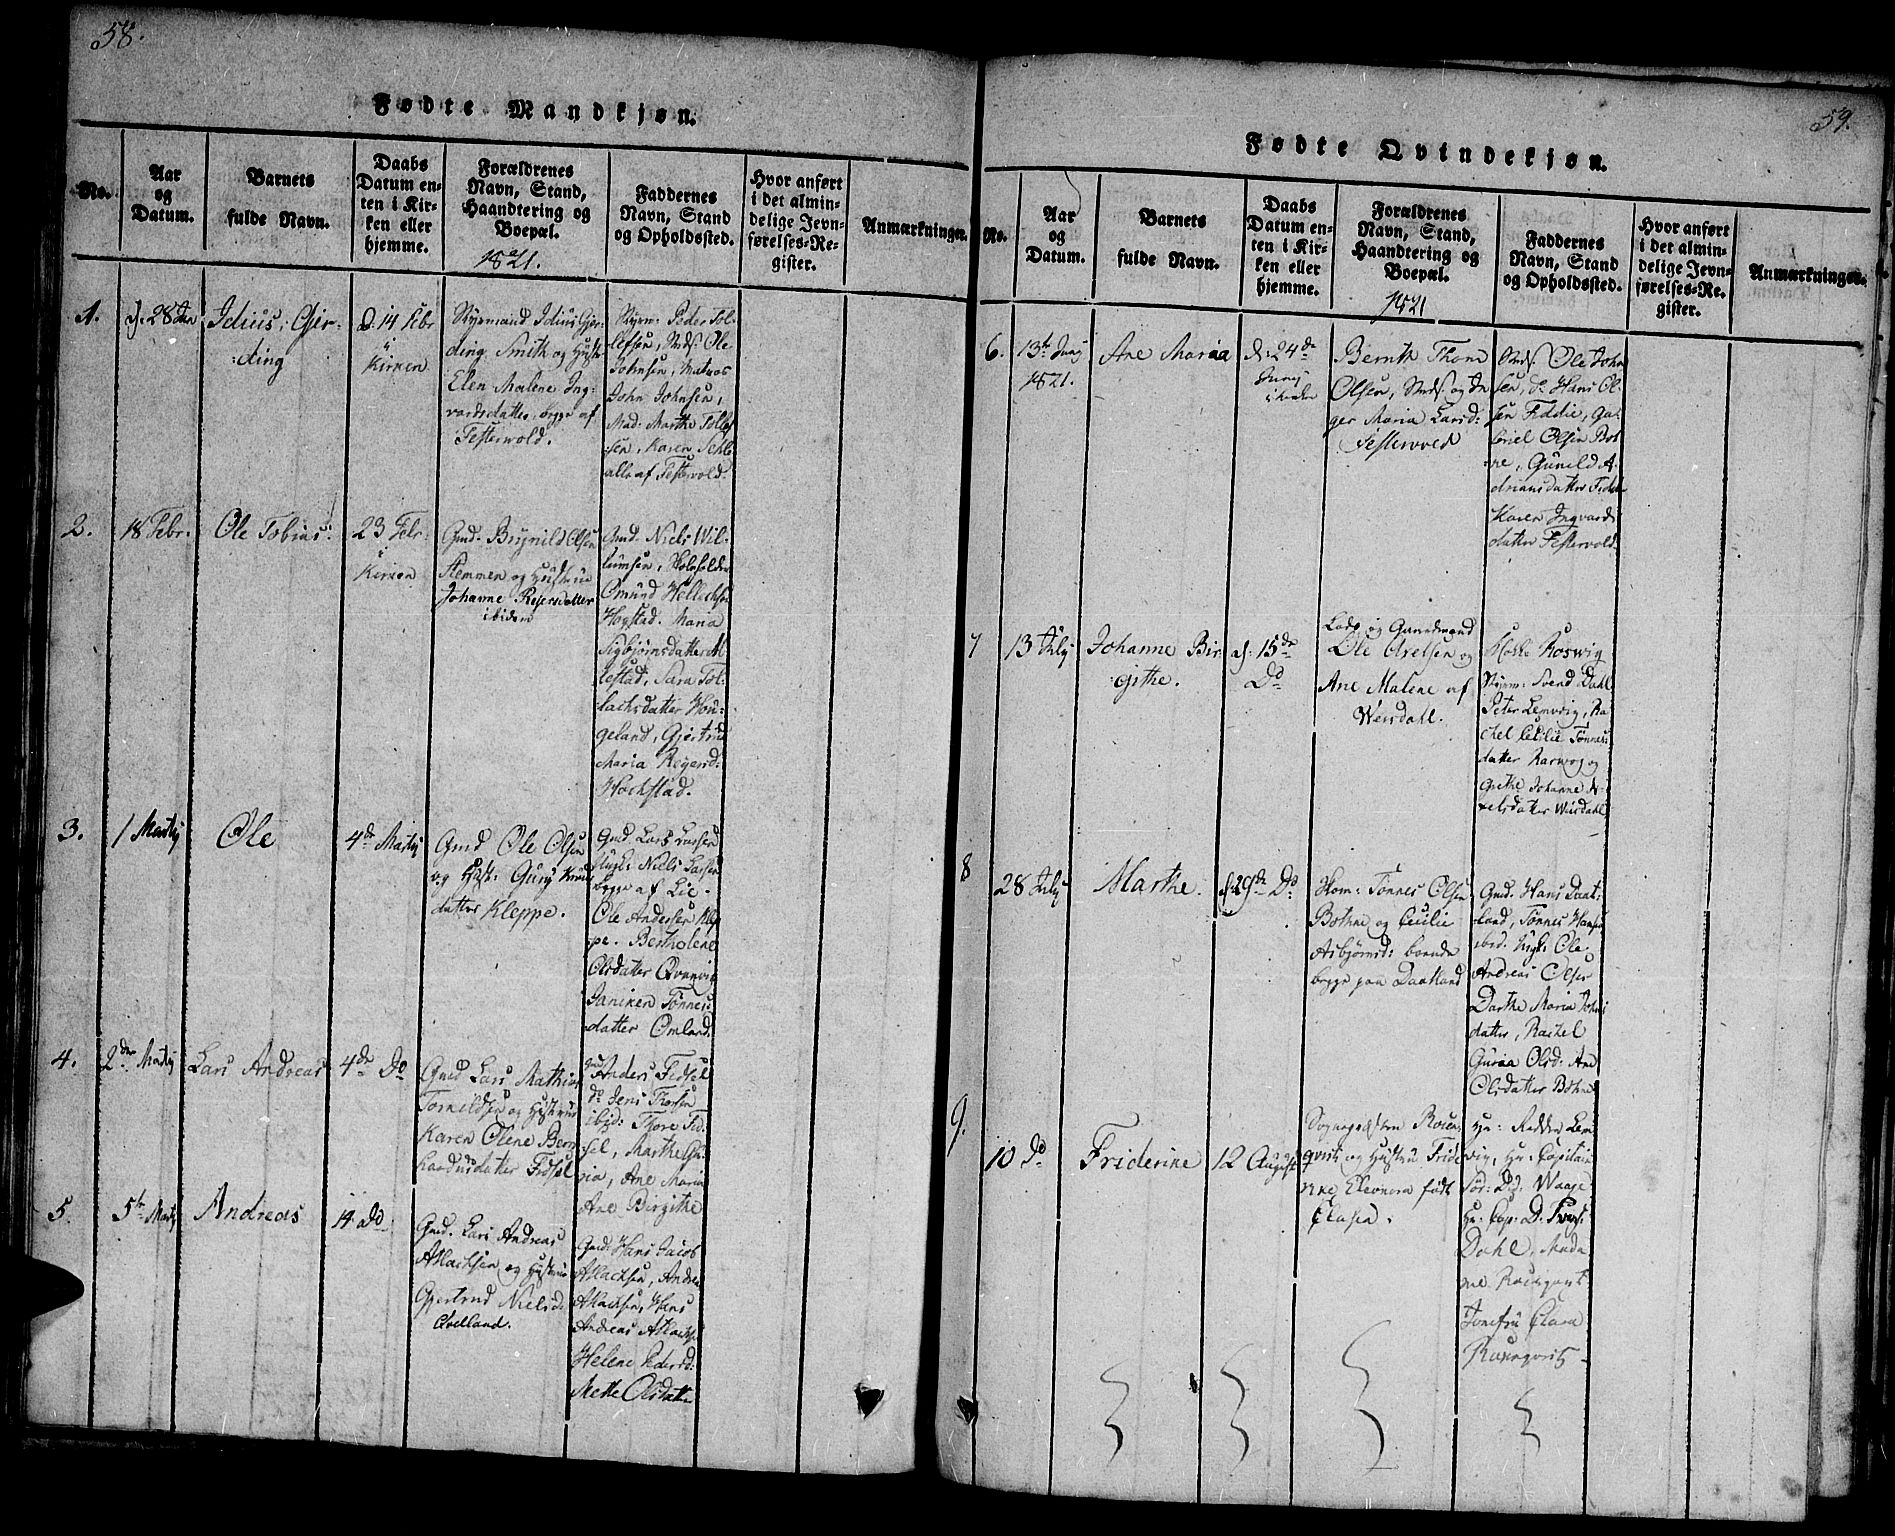 58.
Fødte Mandkjøn.
No.
Aar
og
Datum.
Barnets
fulde Navn.
Daabs
Datum en-
ten i Kir-
ken eller
hjemme.
Forældrenes
Navn, Stand,
Haandtering og
Boepæl.
1821.
Faddernes
Navn, Stand
og Opholdssted.
Hvor anført
i det almin-
delige Jevn-
førelses-Re-
gister.
Anmærkninger.
1.
d. 28 Jan
Idius Gjer-
ding
d: 14 Febr
Kirken
Styrmand Idius Gjer-
ding Smith og Hustr
Elen Malene Ing-
vardsdatter, begge af
Festerwold.
Styrm: Peder Tol-
lefsen, Ole
Johnsen, Matros
John Johnsen,
Mad: Marthe Tollef
sen, Karen
alle af Festervold.
2.
18 Febr.
Ole Tobias
23 Febr.
Kirken
Gmd. Brynild Olsen
Stemmen og Hustrue
Johanne Reiersdatter
ibidem
Gmd. Niels Wil-
lumsen,
Omund
Hogstad. Maria
Sigbjørnsdatter
Sara Tol-
lachsdatter Hou-
geland, Gjertrud
Maria Reyersd:
Hochstad.
3.
1 Martij
Ole
4de Martij
Gmd Ole Olsen
og Hust: Gury
datter Kleppe.
Gmd. Lars Larsen
Ungk: Niels Larsen
begge af Lie.
Ole Andersen Klep
pe. Bertholene
Olsdatter Qvanvig
Janiken Tønnes-
datter Omland.
4.
2den Martij
Lars Andreas
4de Do
Gmd Lars Mathias
Tormildsen og Hustrue
Karen Olene Bern
hardusdatter Fidsel
Gmd Anders Fidsel
do Jens Thorsen
ibid: Thore Fid-
sel, Marthe Gu-
ria, Ane Maria
Ane Birgithe
5.
5te Martij
Andreas
14 do
Gmd. Lars Andreas
Aslachsen og Hustrue
Gjertrud Nielsd:
Qvelland.
Gmd: Hans Jacob
Aslachsen, Andrea
Aslachsen, Hans
Andreas Aslachs
Helene Pedersd:
Mette Olsdatter
59.
Fødte Qvindekjøn.
No.
Aar
og
Datum.
Barnets
fulde Navn.
Daabs
Datum en-
ten i Kir-
ken eller
hjemme.
Forældrenes
Navn, Stand,
Haandtering og
Boepæl.
1821
Faddernes
Navn, Stand
og Opholdssted.
Hvor anført
i det almin-
delige Jevn-
førelses-Re-
gister.
Anmærkninger.
6.
13de Junij
1821.
Ane Maria
d: 24de
Junij
i Kirken
Bernth Thom
Olsen, og In
ger Maria Larsd:
Festervold
Ole John
sen, do Hans Ol-
sen Feddie, Ga-
briel Olsen Bot
ne, Gunild A-
driansdatter
Karen Ingvards
datter Festervold.
7
13 July
Johanne Bir-
githe.
d: 15de
Do
Lods og Gaardmand
Ole Axelsen og
Ane Malene af
Weisdahl.
Roswig
Styrm: Svend Dahl
Peter Lemvig, Ra
chel Cecilie Tønnes
datter Narwog og
Grethe Johanne A-
xelsdatter Weisdahl
8
28 July
Marthe.
d: 29de Do
Hom: Tønnes Olsen
Bothne og Cecilie
Asbjørnsd: boende
begge paa Daatland
Gmd: Hans Daat-
land, Tønnes Hans
ibid. Ungk: Ole
Andreas Olsen
Dorthe Maria Johns
datter, Rachel
Guria Olsd: Ane
Olsdatter Bothne
9.
10 do
Friderine
12 August
Sognepræsten Rosen-
qvist og Hustru Fride
rike Eleonora født
Clasen.
Hr: Redder Lem
vig, Hr: Capitain
Sør: Waage
Hr: Cap: D.
Dahl, Mada
me
Jomfru Clara
Rosenqvist